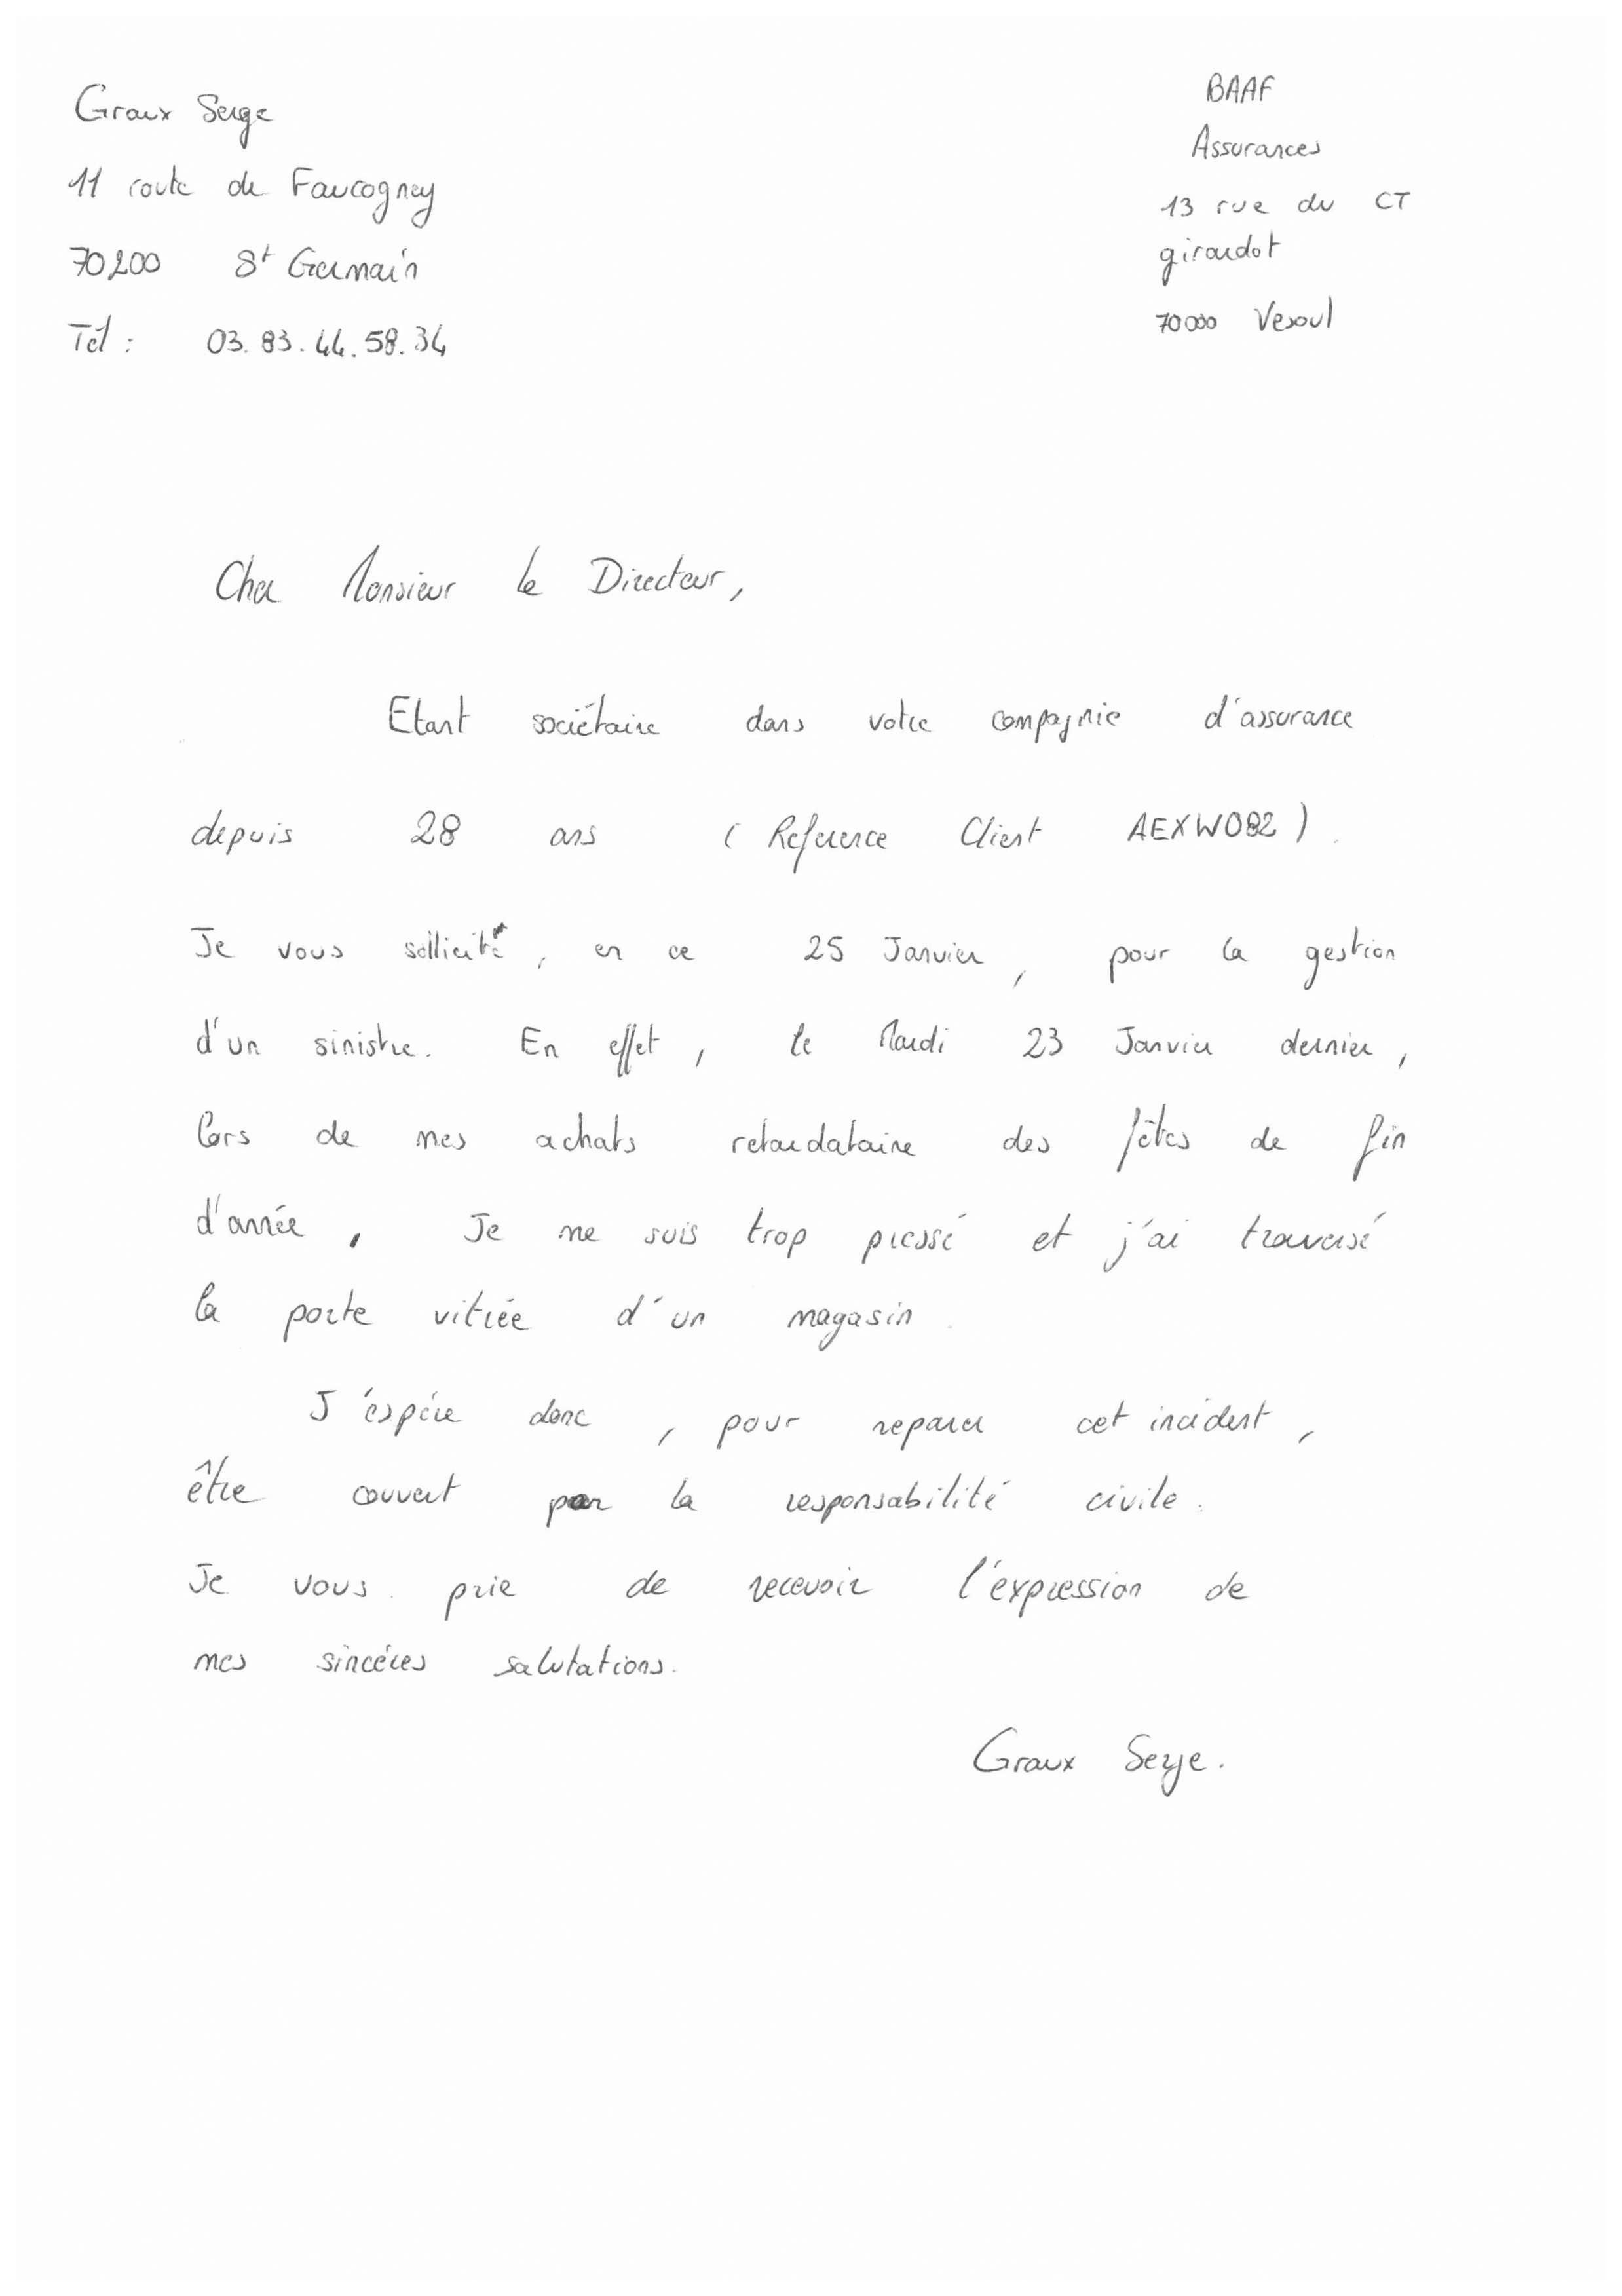 Graux Serge
11 route de Faucogney
70200 St Germain
Tél : 03.83.44.58.34
BAAF
Assurances
13 rue du CT
girardot
70000 Vesoul
Cher Monsieur le Directeur,
Etant sociétaire dans votre compagnie d'assurance
depuis 28 ans (Reference Client AEXW082).
Je vous sollicite, en ce 25 Janvier, pour la gestion
d'un sinistre. En effet, le Mardi 23 Janvier dernier,
lors de mes achats retardataire des fêtes de fin
d'année, Je me suis trop pressé et j'ai traversé
la porte vitrée d'un magasin.
J'espére donc, pour reparer cet incident,
être couvert par la responsabilité civile.
Je vous prie de recevoir l'expression de
mes sincéres salutations.
Graux Serge.